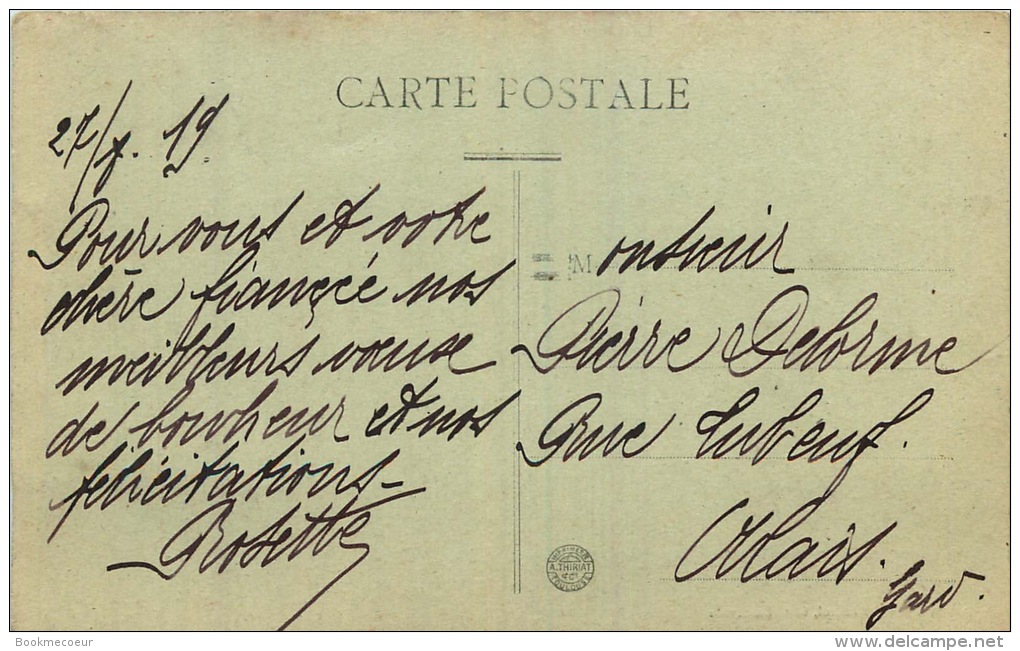 CARTE POSTALE
27/7. 19.
Pour vous et votre
chère fiancée nos
meilleurs vœux
de bonheur et nos
félicitations -
Rosette
Monsieur
Pierre Delorme
Rue Lubeuf.
Alais.
Gard.
IMPRIMERIE
A. THIRIAT
& Cie
TOULOUSE
Bookmecoeur
www.delcampe.net